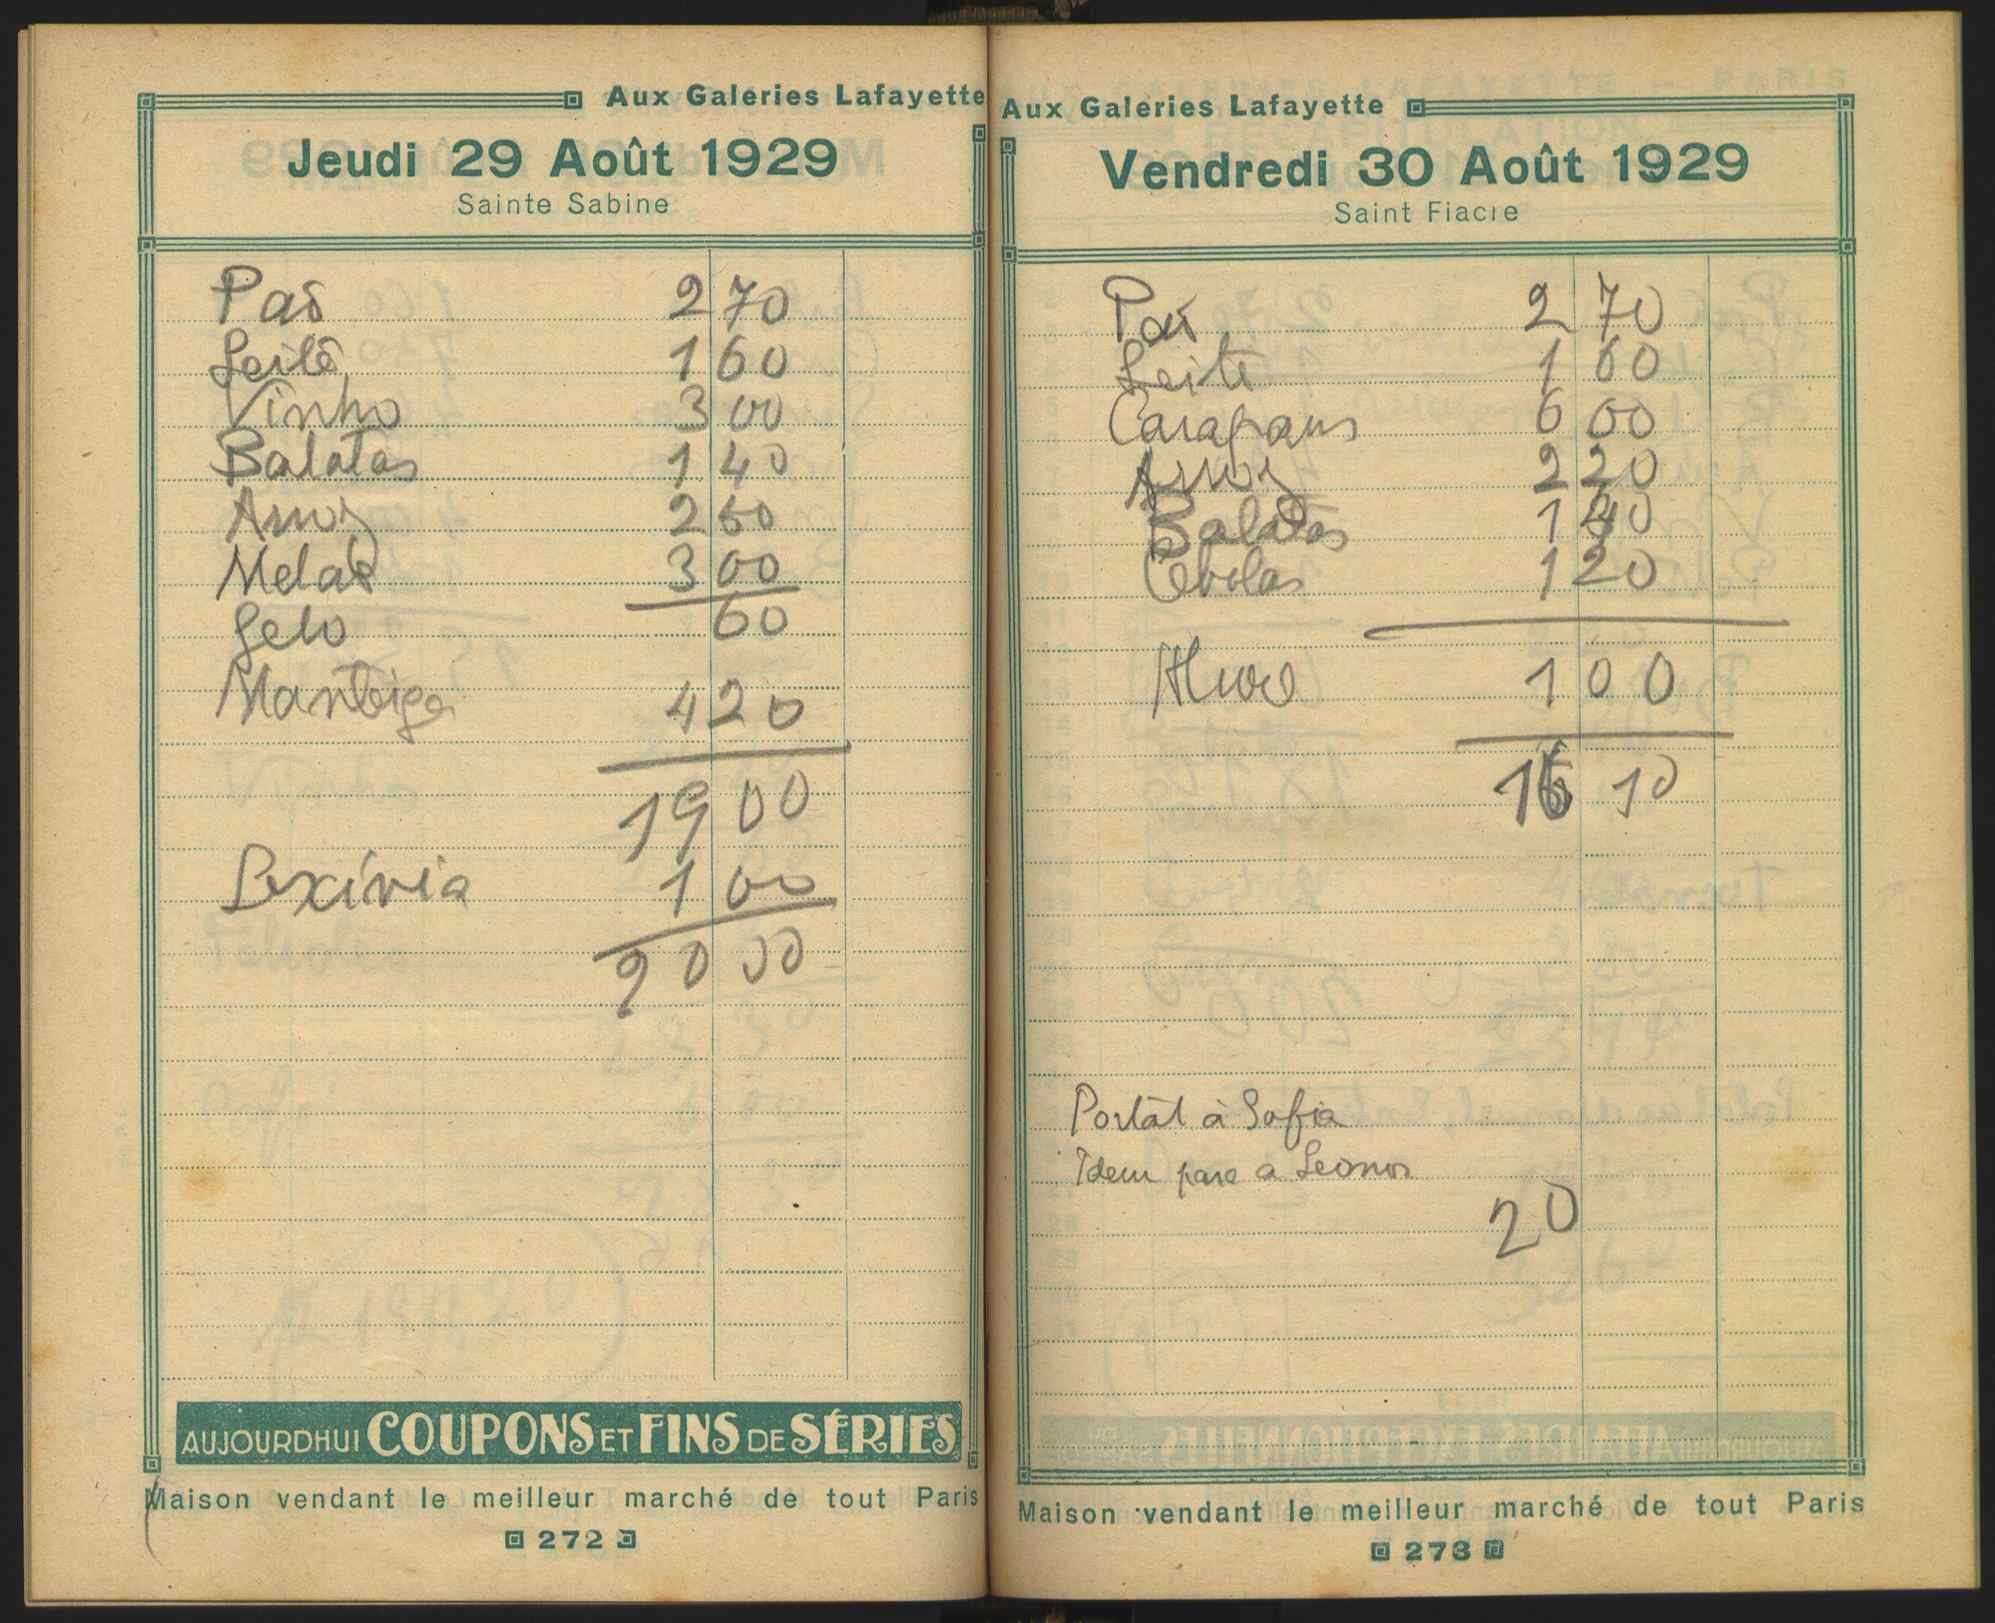 Aux Galeries Lafayette
Jeudi 29 Août 1929
Sainte Sabine
Pão 2 70
Leite 1 60
Vinho 3 00
Batatas 1 40
Arroz 2 50
Melão 3 00
Gelo 60
Manteiga 4 20
19 00
Lexívia 1 00
20 00
AUJOURDHUI COUPONS ET FINS DE SÉRIES
Maison vendant le meilleur marché de tout Paris
272
Aux Galeries Lafayette
Vendredi 30 Août 1929
Saint Fiacre
Pão 2 70
Leite 1 60
Carapaus 6 00
Arroz 2 20
Batatas 1 40
Cebolas 1 20
1 00
16 10
Postal à Sofia
Idem para a Leonor
20
Maison vendant le meilleur marché de tout Paris
273